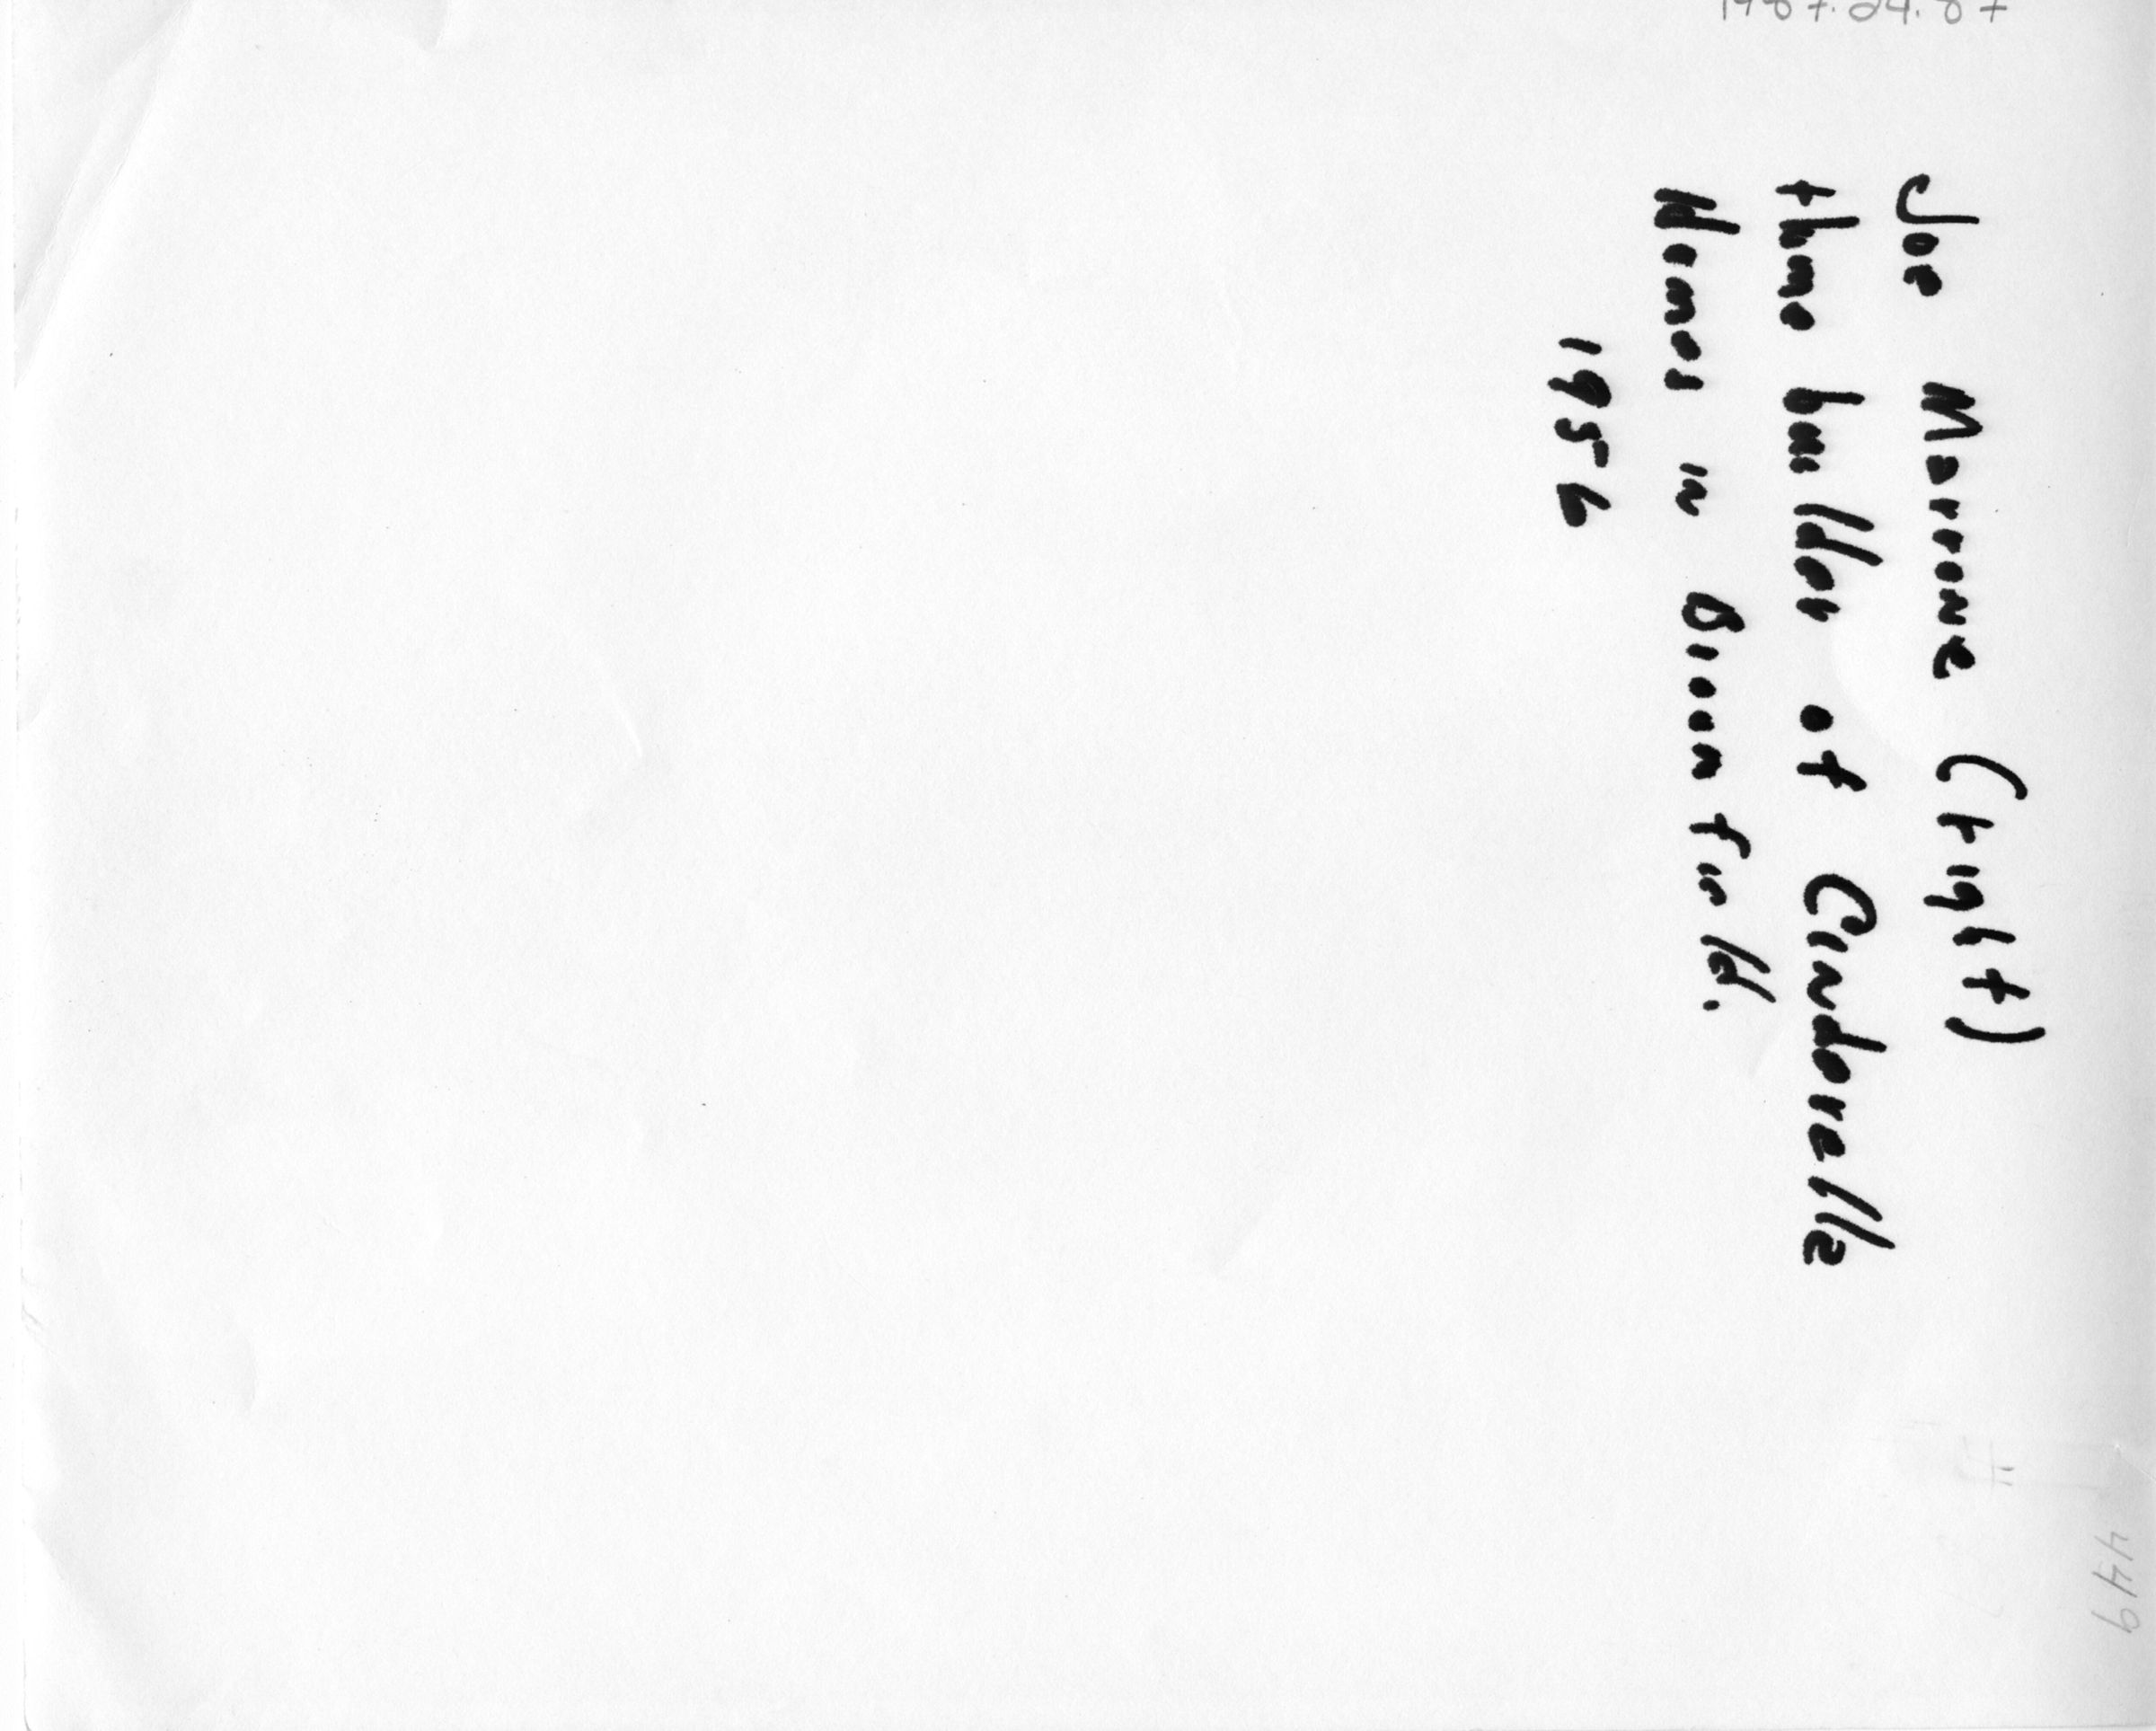 Joe Marrone (right)
thme builder of Cinderella
Homes in Bloomfield.
1956
449